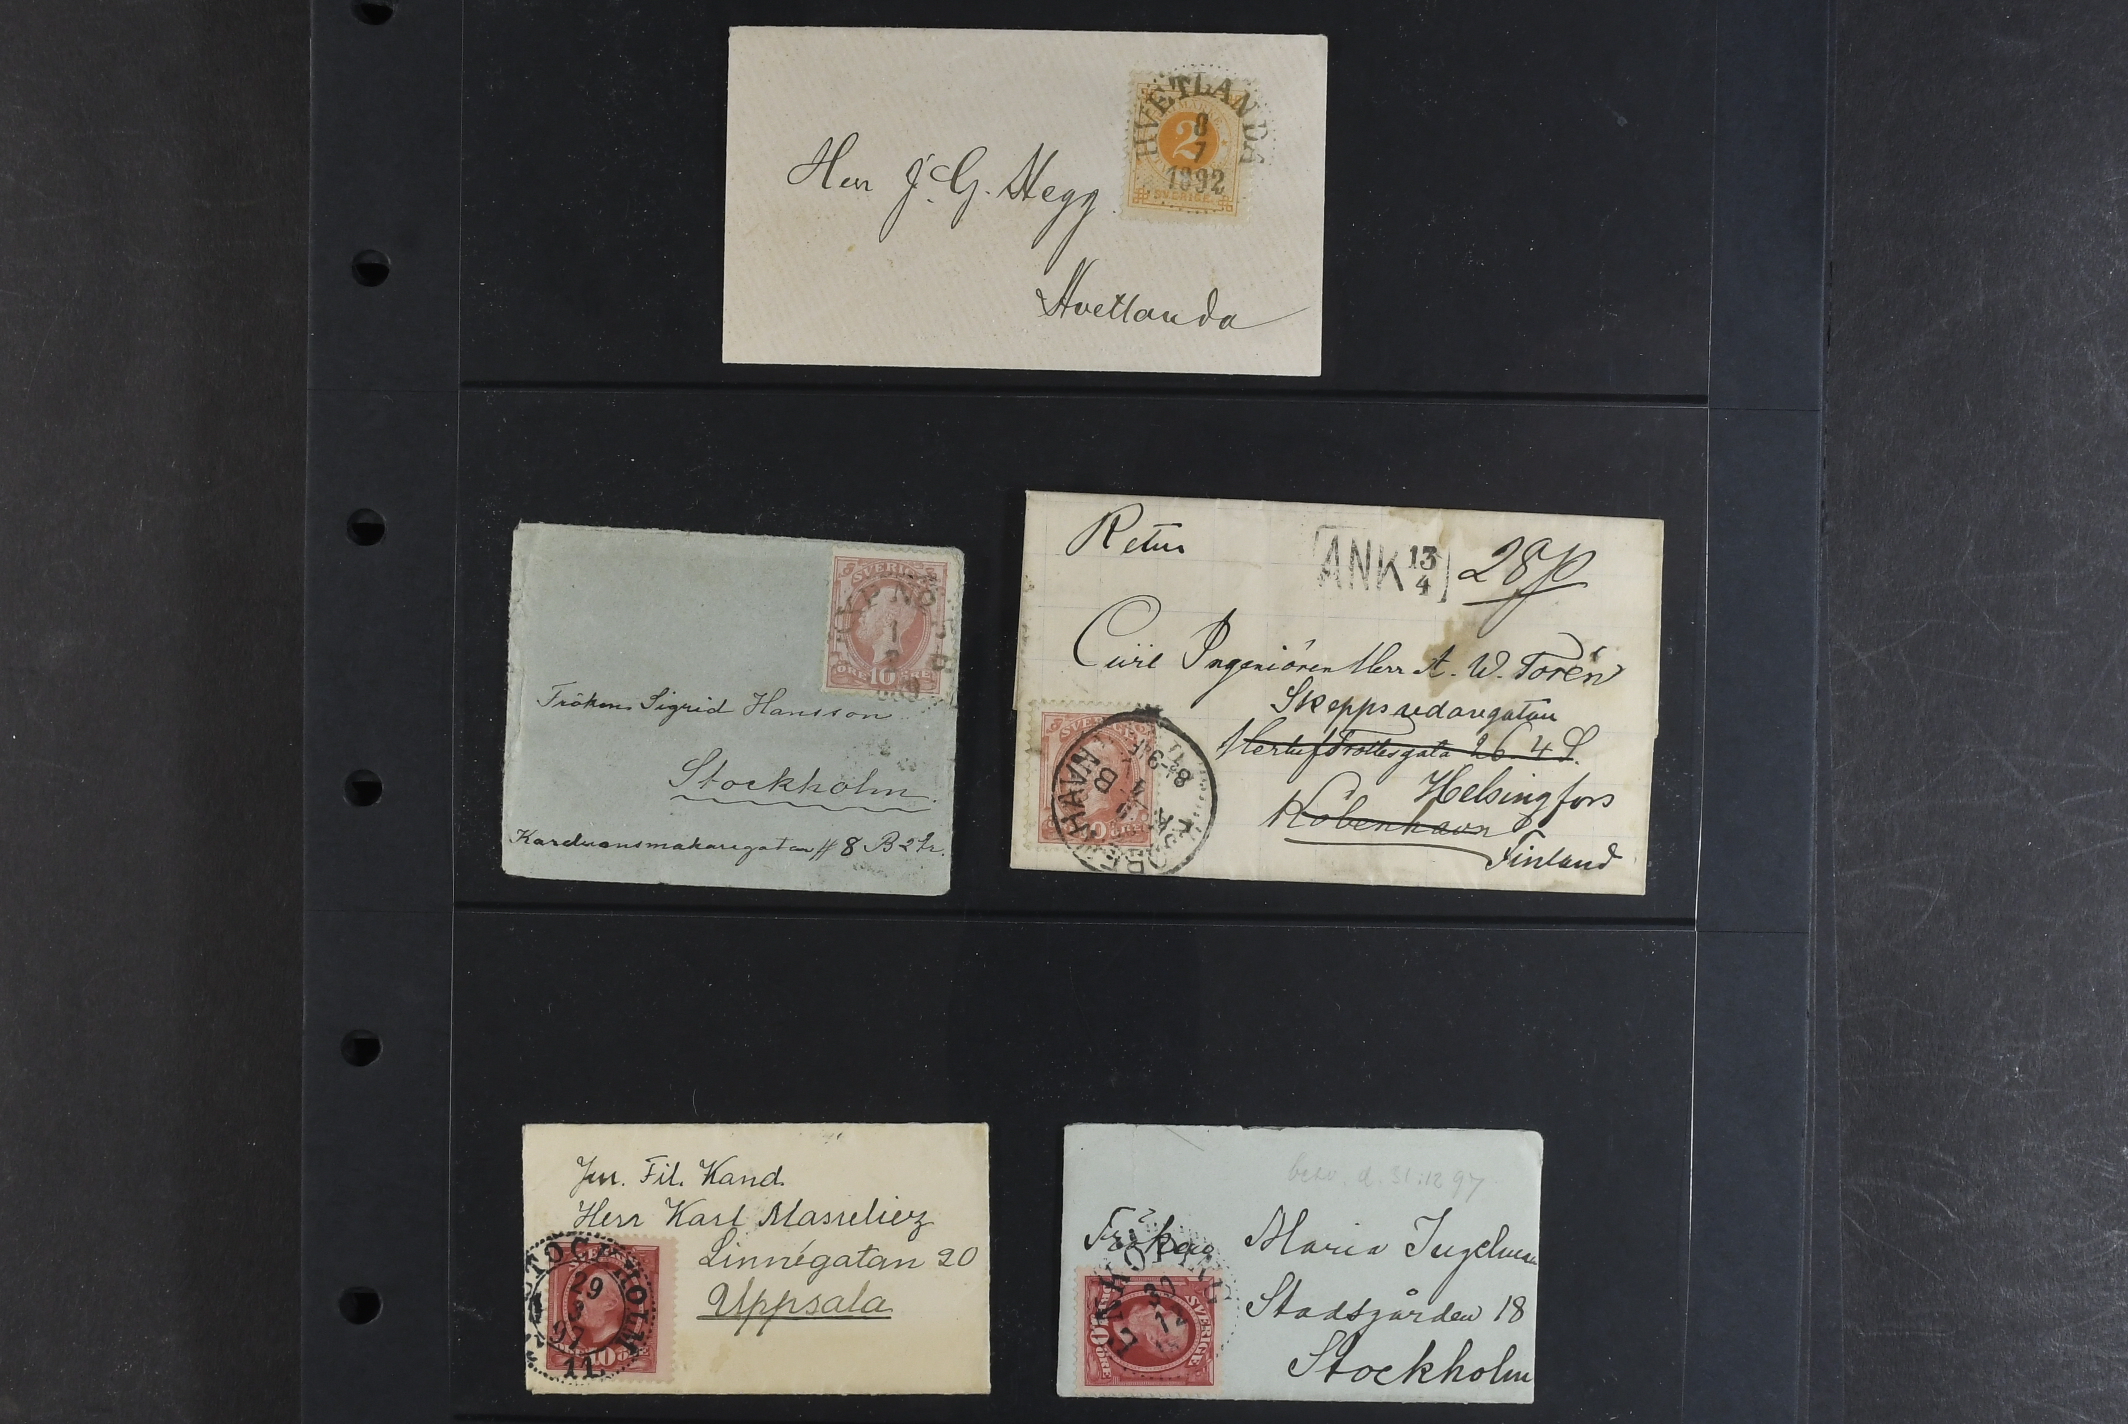 HVETLANDA
8
7
1892
2
SVERIGE
Herr J. G. Hegg
Hvetlanda
SVERIGE
PKXP Nº
1
2
10
ÖRE ÖRE
Fröken Sigrid Hansson
Stockholm.
Karduansmakaregatan # 8 B 2 tr.
Retur
ANK 13
4
Civil Ingeniören Herr A. W. Torén
Skeppsredaregatan
Herluf Trollesgata 26 4 S.
Helsingfors
Köbenhavn
Finland
SVERIGE
KJØBENHAVN
B
10
Jun. Fil. Kand.
Herr Karl Masreliez
Linnégatan 20
Uppsala
STOCKHOLM
29
97
11
10 ÖRE
besv. d. 31.12 97
Fröken Maria
Stadsgården 18
Stockholm
SVERIGE
30
12
10
ÖRE